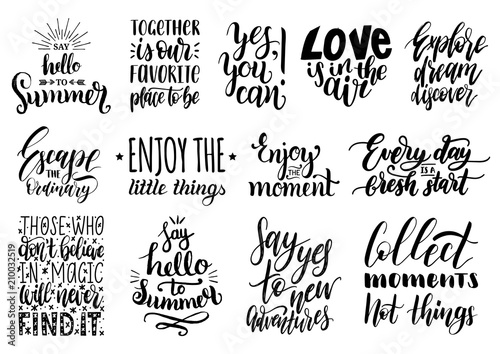 SAY
hello
TO
Summer
TOGETHER
is our
FAVORITE
place to be
Yes,
you
can!
LOVE
is in the
air
Explore
dream
discover
Escape
THE
Ordinary
ENJOY THE
little things
Enjoy
THE
moment
Every day
IS A
fresh start
THOSE WHO
don't believe
IN MAGIC
will never
FIND IT.
Say
hello
to
Summer
Say
yes
to new
adventures
Collect
moments
Not things
210032519